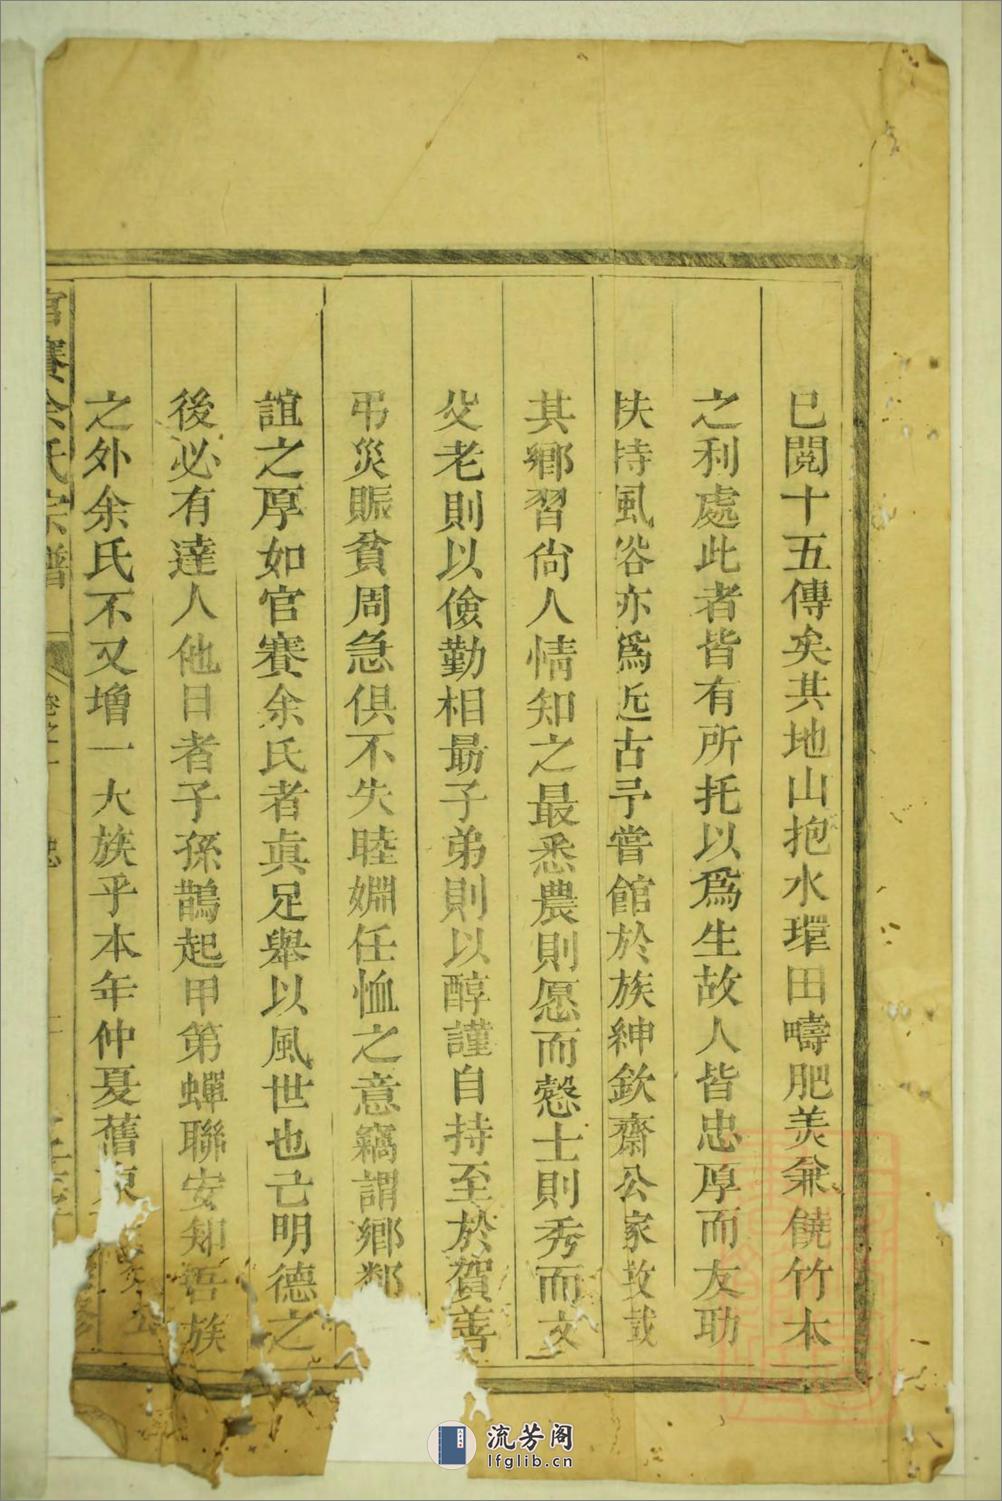 已閱十五傳矣其地山抱水環田疇肥美兼饒竹木
之利處此者皆有所托以爲生故人皆忠厚而友助
扶持風俗亦爲近古予嘗館於族紳欽齋公家数載
其鄉習尙人情知之最悉農則愿而慤士則秀而文
父老則以儉勤相勗子弟則以醇謹自持至於賀善
弔災賑貧周急俱不失睦婣任恤之意竊謂鄉鄰
誼之厚如官賽余氏者眞足舉以風世也己明德之
後必有達人他日者子孫鵲起甲第蟬聯安知吾族
之外余氏不又增一大族乎本年仲夏舊東
官賽余氏宗譜
流芳阁
lfglib.cn